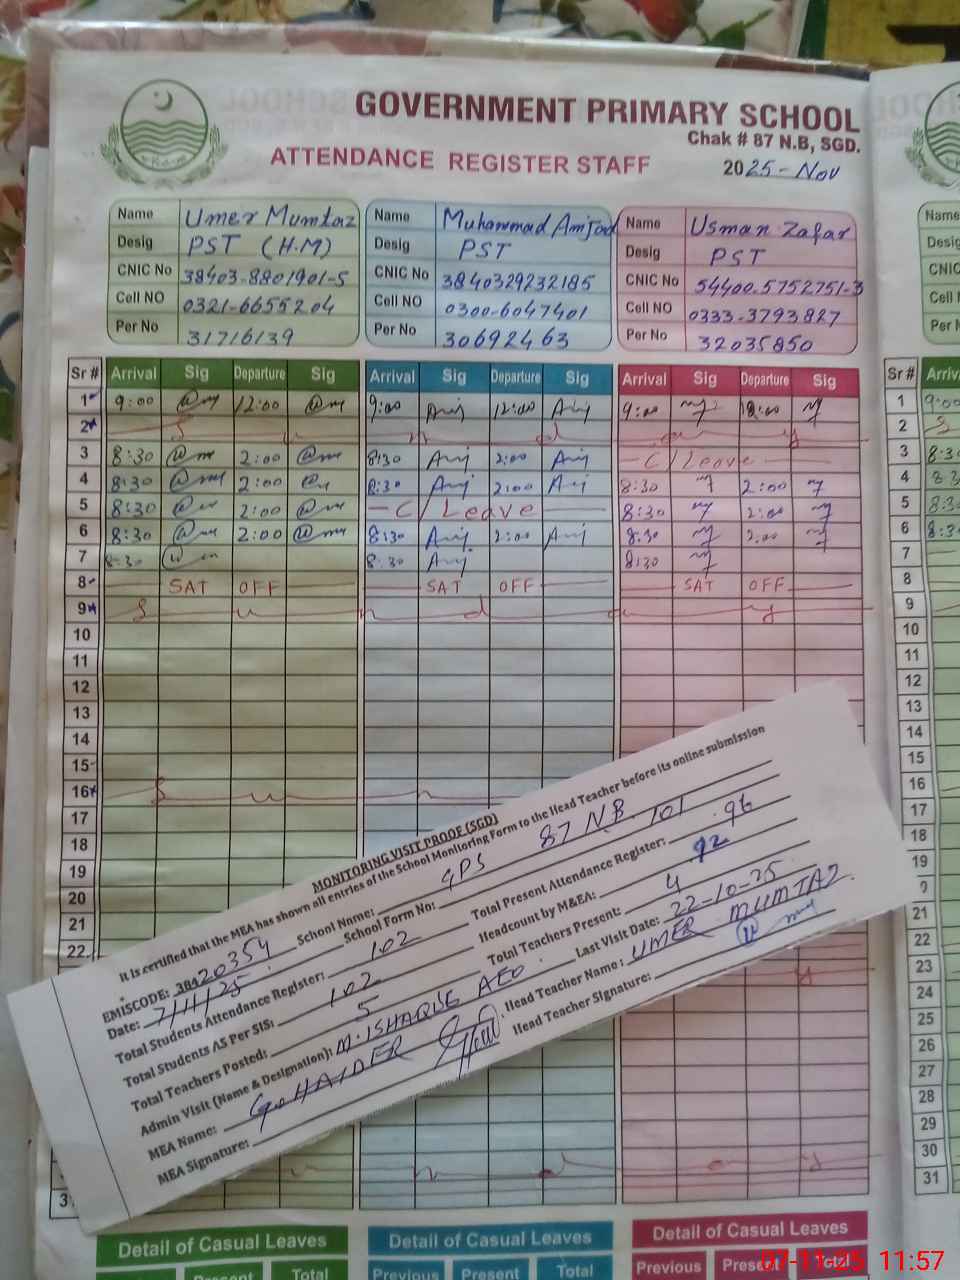 GOVERNMENT PRIMARY SCHOOL
Chak # 87 N.B, SGD.
ATTENDANCE REGISTER STAFF
2025-Nov
Name Umer Mumtaz Name Muhammad Amjad Name Usman Zafar
Desig PST (H.M) Desig PST Desig PST
CNIC No 38403-8801901-5 CNIC No 3840329232185 CNIC No 54400-5752751-3
Cell NO 0321-6655204 Cell NO 0300-6047401 Cell NO 0333-3793827
Per No 31716139 Per No 30692463 Per No 32035850
Sr # Arrival Sig Departure Sig Arrival Sig Departure Sig Arrival Sig Departure Sig Sr #
1 9:00 12:00 9:00 Amj 12:00 Amj 9:00 12:00 1 9:00
2 S u n d a y 2 S
3 8:30 2:00 8:30 Amj 2:00 Amj C/Leave 3 8:30
4 8:30 2:00 8:30 Amj 2:00 Amj 8:30 2:00 4 8:30
5 8:30 2:00 C/Leave 8:30 2:00 5 8:30
6 8:30 2:00 8:30 Amj 2:00 Amj 8:30 2:00 6 8:30
7 8:30 8:30 Amj 8:30 7
8 SAT OFF SAT OFF SAT OFF 8
9 S u n d a y 9
10 10
11 11
12 12
13 13
14 14
15 15
16 S u n 16
17 17
18 18
19 19
20
21 21
22 22
y 23
24
25
26
27
28
29
n d a y 30
31
MONITORING VISIT PROOF (SGD)
It is certified that the MEA has shown all entries of the School Monitoring Form to the Head Teacher before its online submission
EMISCODE: 38420354 School Name: GPS 87 NB
Date: 7/11/25 School Form No: 101
Total Students Attendance Register: 102 Total Present Attendance Register: 96
Total Students AS Per SIS: 102 Headcount by M&EA: 92
Total Teachers Posted: 5 Total Teachers Present: 4
Admin Visit (Name & Designation): M. ISHAQUE AEO Last Visit Date: 22-10-25
MEA Name: G. HAIDER Head Teacher Name: UMER MUMTAZ
MEA Signature: Head Teacher Signature:
Detail of Casual Leaves Detail of Casual Leaves Detail of Casual Leaves
Present Total Previous Present Total Previous Present Total
07-11-25 11:57